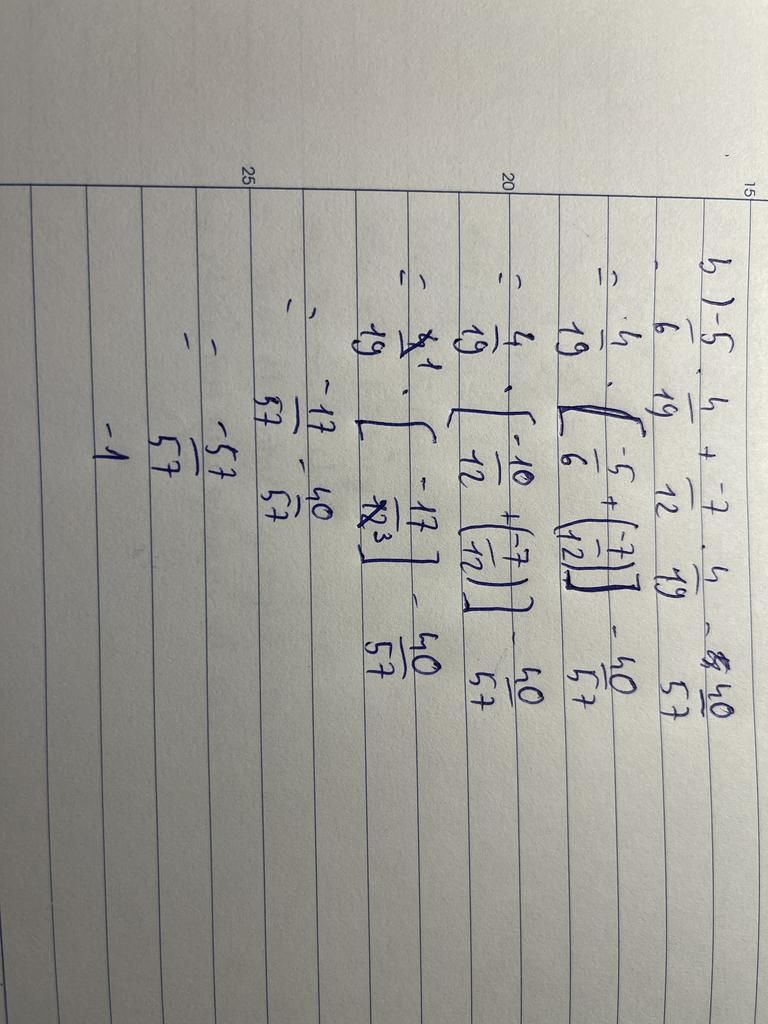 15
b) -5/6 · 4/19 + -7/12 · 4/19 - 40/57
= 4/19 · [-5/6 + (-7/12)] - 40/57
20
= 4/19 · [-10/12 + (-7/12)] - 40/57
= 4 1/19 · [-17/12 3] - 40/57
25
= -17/57 - 40/57
= -57/57
= -1